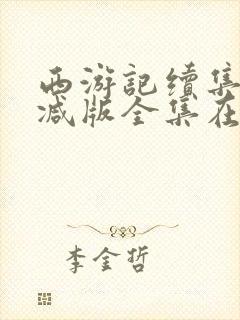 西游記续集
减版全集在
李金哲